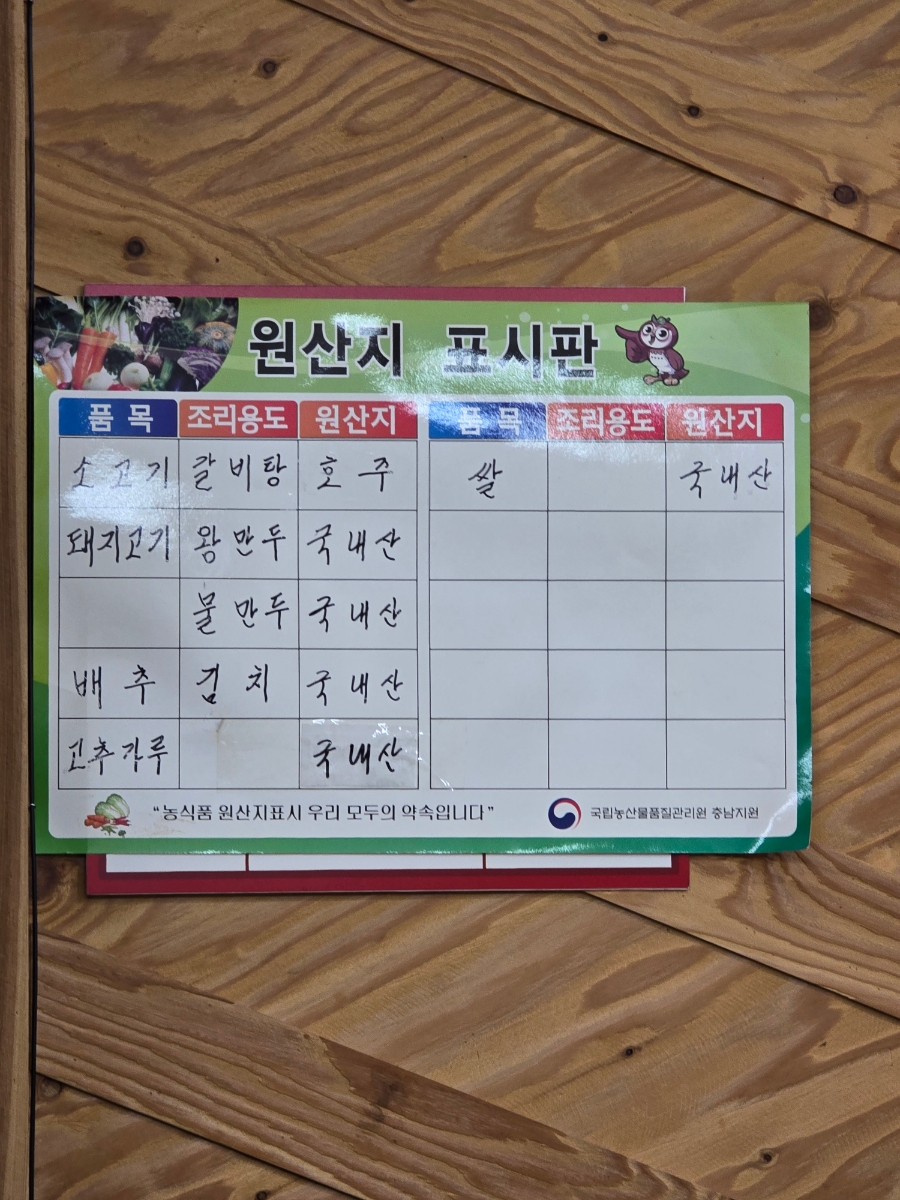 원산지 표시판
품목 조리용도 원산지 품목 조리용도 원산지
소고기 갈비탕 호주 쌀 국내산
돼지고기 왕만두 국내산
물만두 국내산
배추 김치 국내산
고추가루 국내산
"농식품 원산지표시 우리 모두의 약속입니다" 국립농산물품질관리원 충남지원